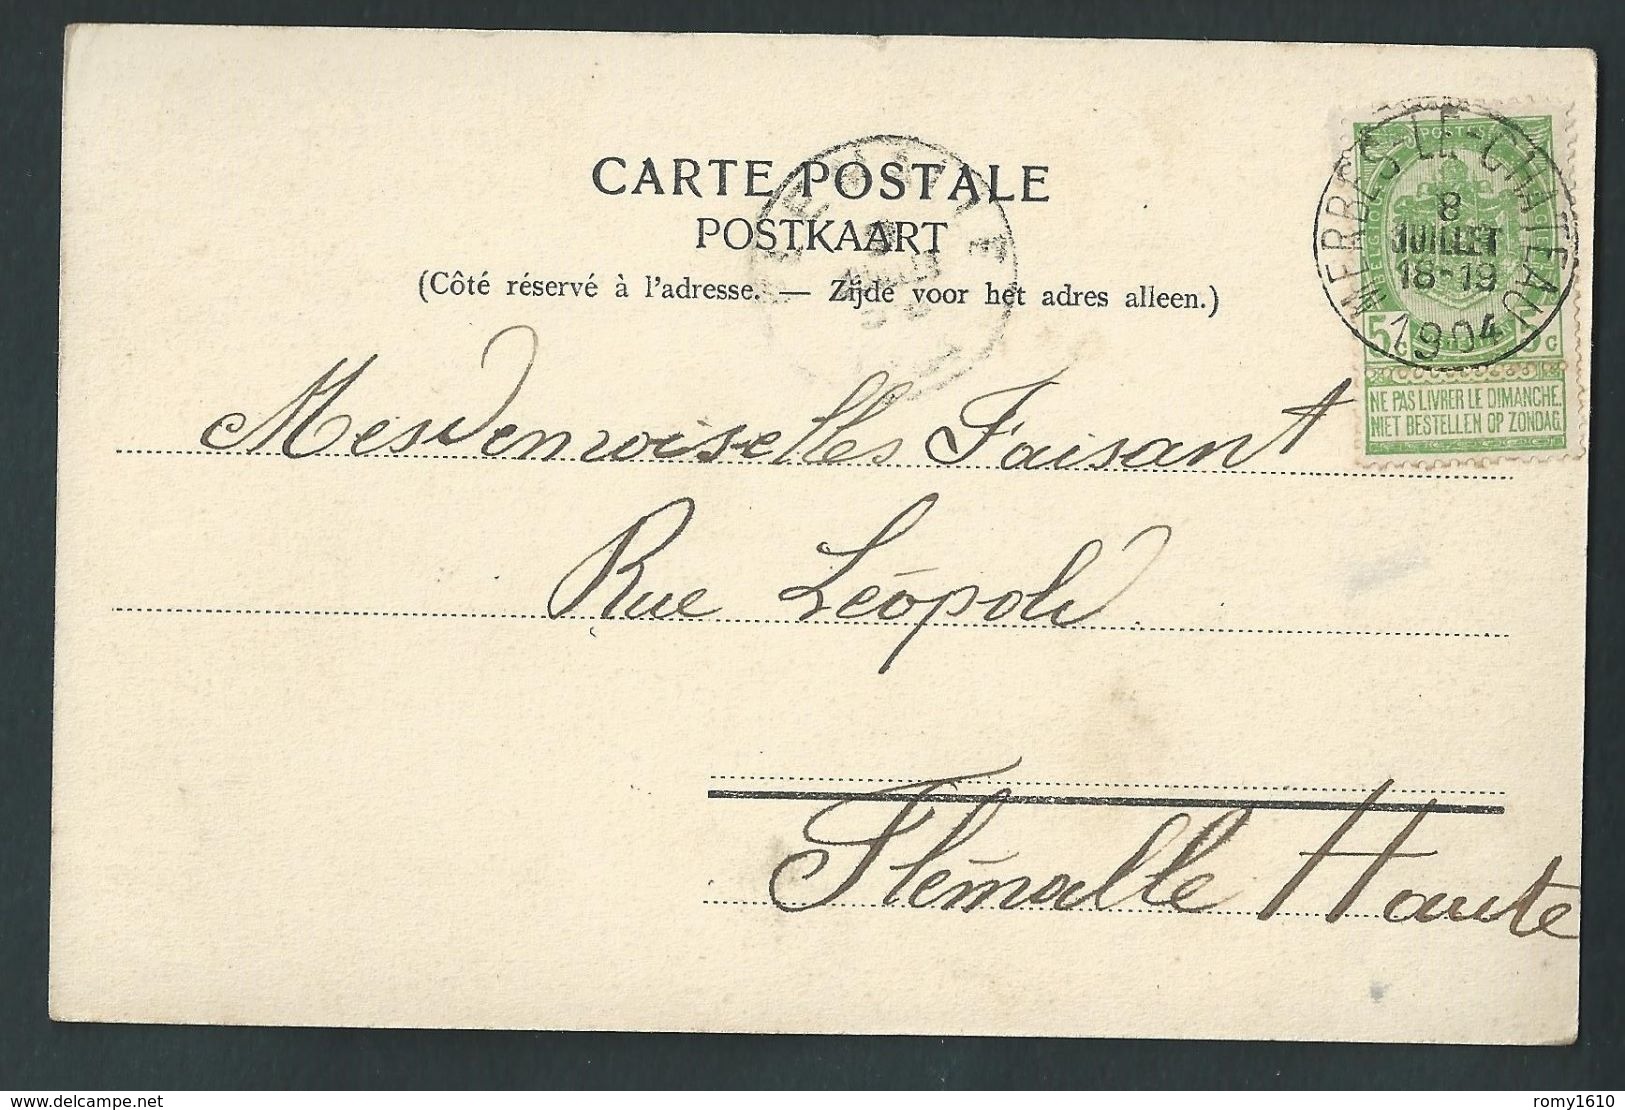 CARTE POSTALE
POSTKAART
(Côté réservé à l'adresse. — Zijde voor het adres alleen.)
MERBES-LE-CHATEAU
8
JUILLET
18-19
1904
POSTES
5c 5c
NE PAS LIVRER LE DIMANCHE.
NIET BESTELLEN OP ZONDAG.
Mesdemoiselles Faisant
Rue Léopold
Flémalle Haute
www.delcampe.net
romy1610